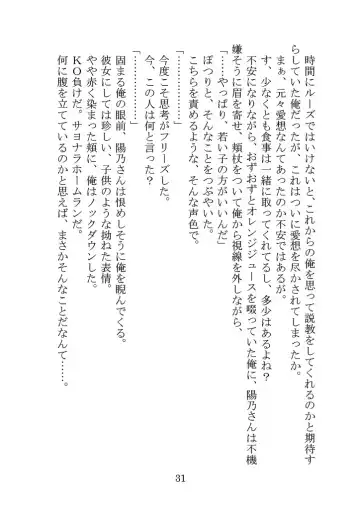 時間にルーズではいけないと、これからの俺を思って説教をしてくれるのかと期待す
らしていた俺だったが、これはついに愛想を尽かされてしまったか。
まぁ、元々愛想なんてあったのか不安ではあるが。
す、少なくとも食事は一緒に取ってくれてるし、多少はあるよね？
不安になりながら、おずおずとオレンジジュースを啜っていた俺に、陽乃さんは不機
嫌そうに眉を寄せ、頬杖をついて俺から視線を外しながら、
「……やっぱり、若い子の方がいいんだ」
ぽつりと、そんなことをつぶやいた。
こちらを責めるような、そんな声色で。
「…………」
「…………」
今度こそ思考がフリーズした。
今、この人は何と言った？
固まる俺の眼前、陽乃さんは恨めしそうに俺を睨んでくる。
彼女にしては珍しい、子供のような拗ねた表情。
やや赤く染まった頬に、俺はノックダウンした。
ＫＯ負けだ。サヨナラホームランだ。
何に腹を立てているのかと思えば、まさかそんなことだなんて……。
31